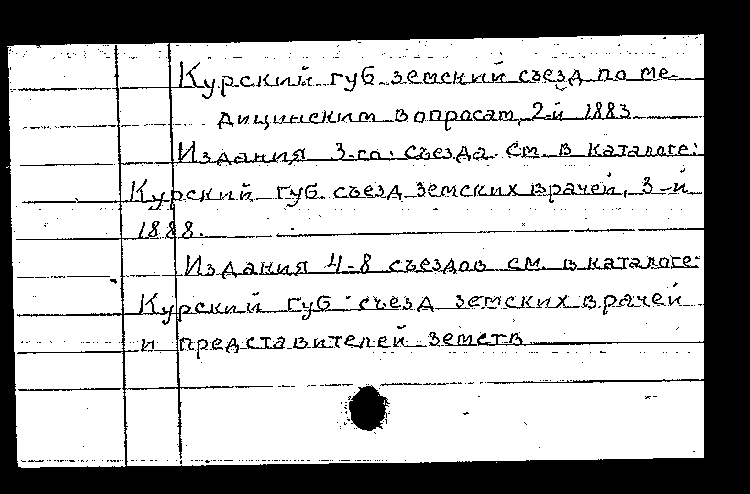 Курский губ. земский съезд по ме-
дицинским вопросам, 2-й 1883.
Издания 3-го съезда см. в каталоге:
Курский губ. съезд земских врачей, 3-й
1888.
Издания 4-8 съездов см. в каталоге:
Курский губ. съезд земских врачей
и представителей земств